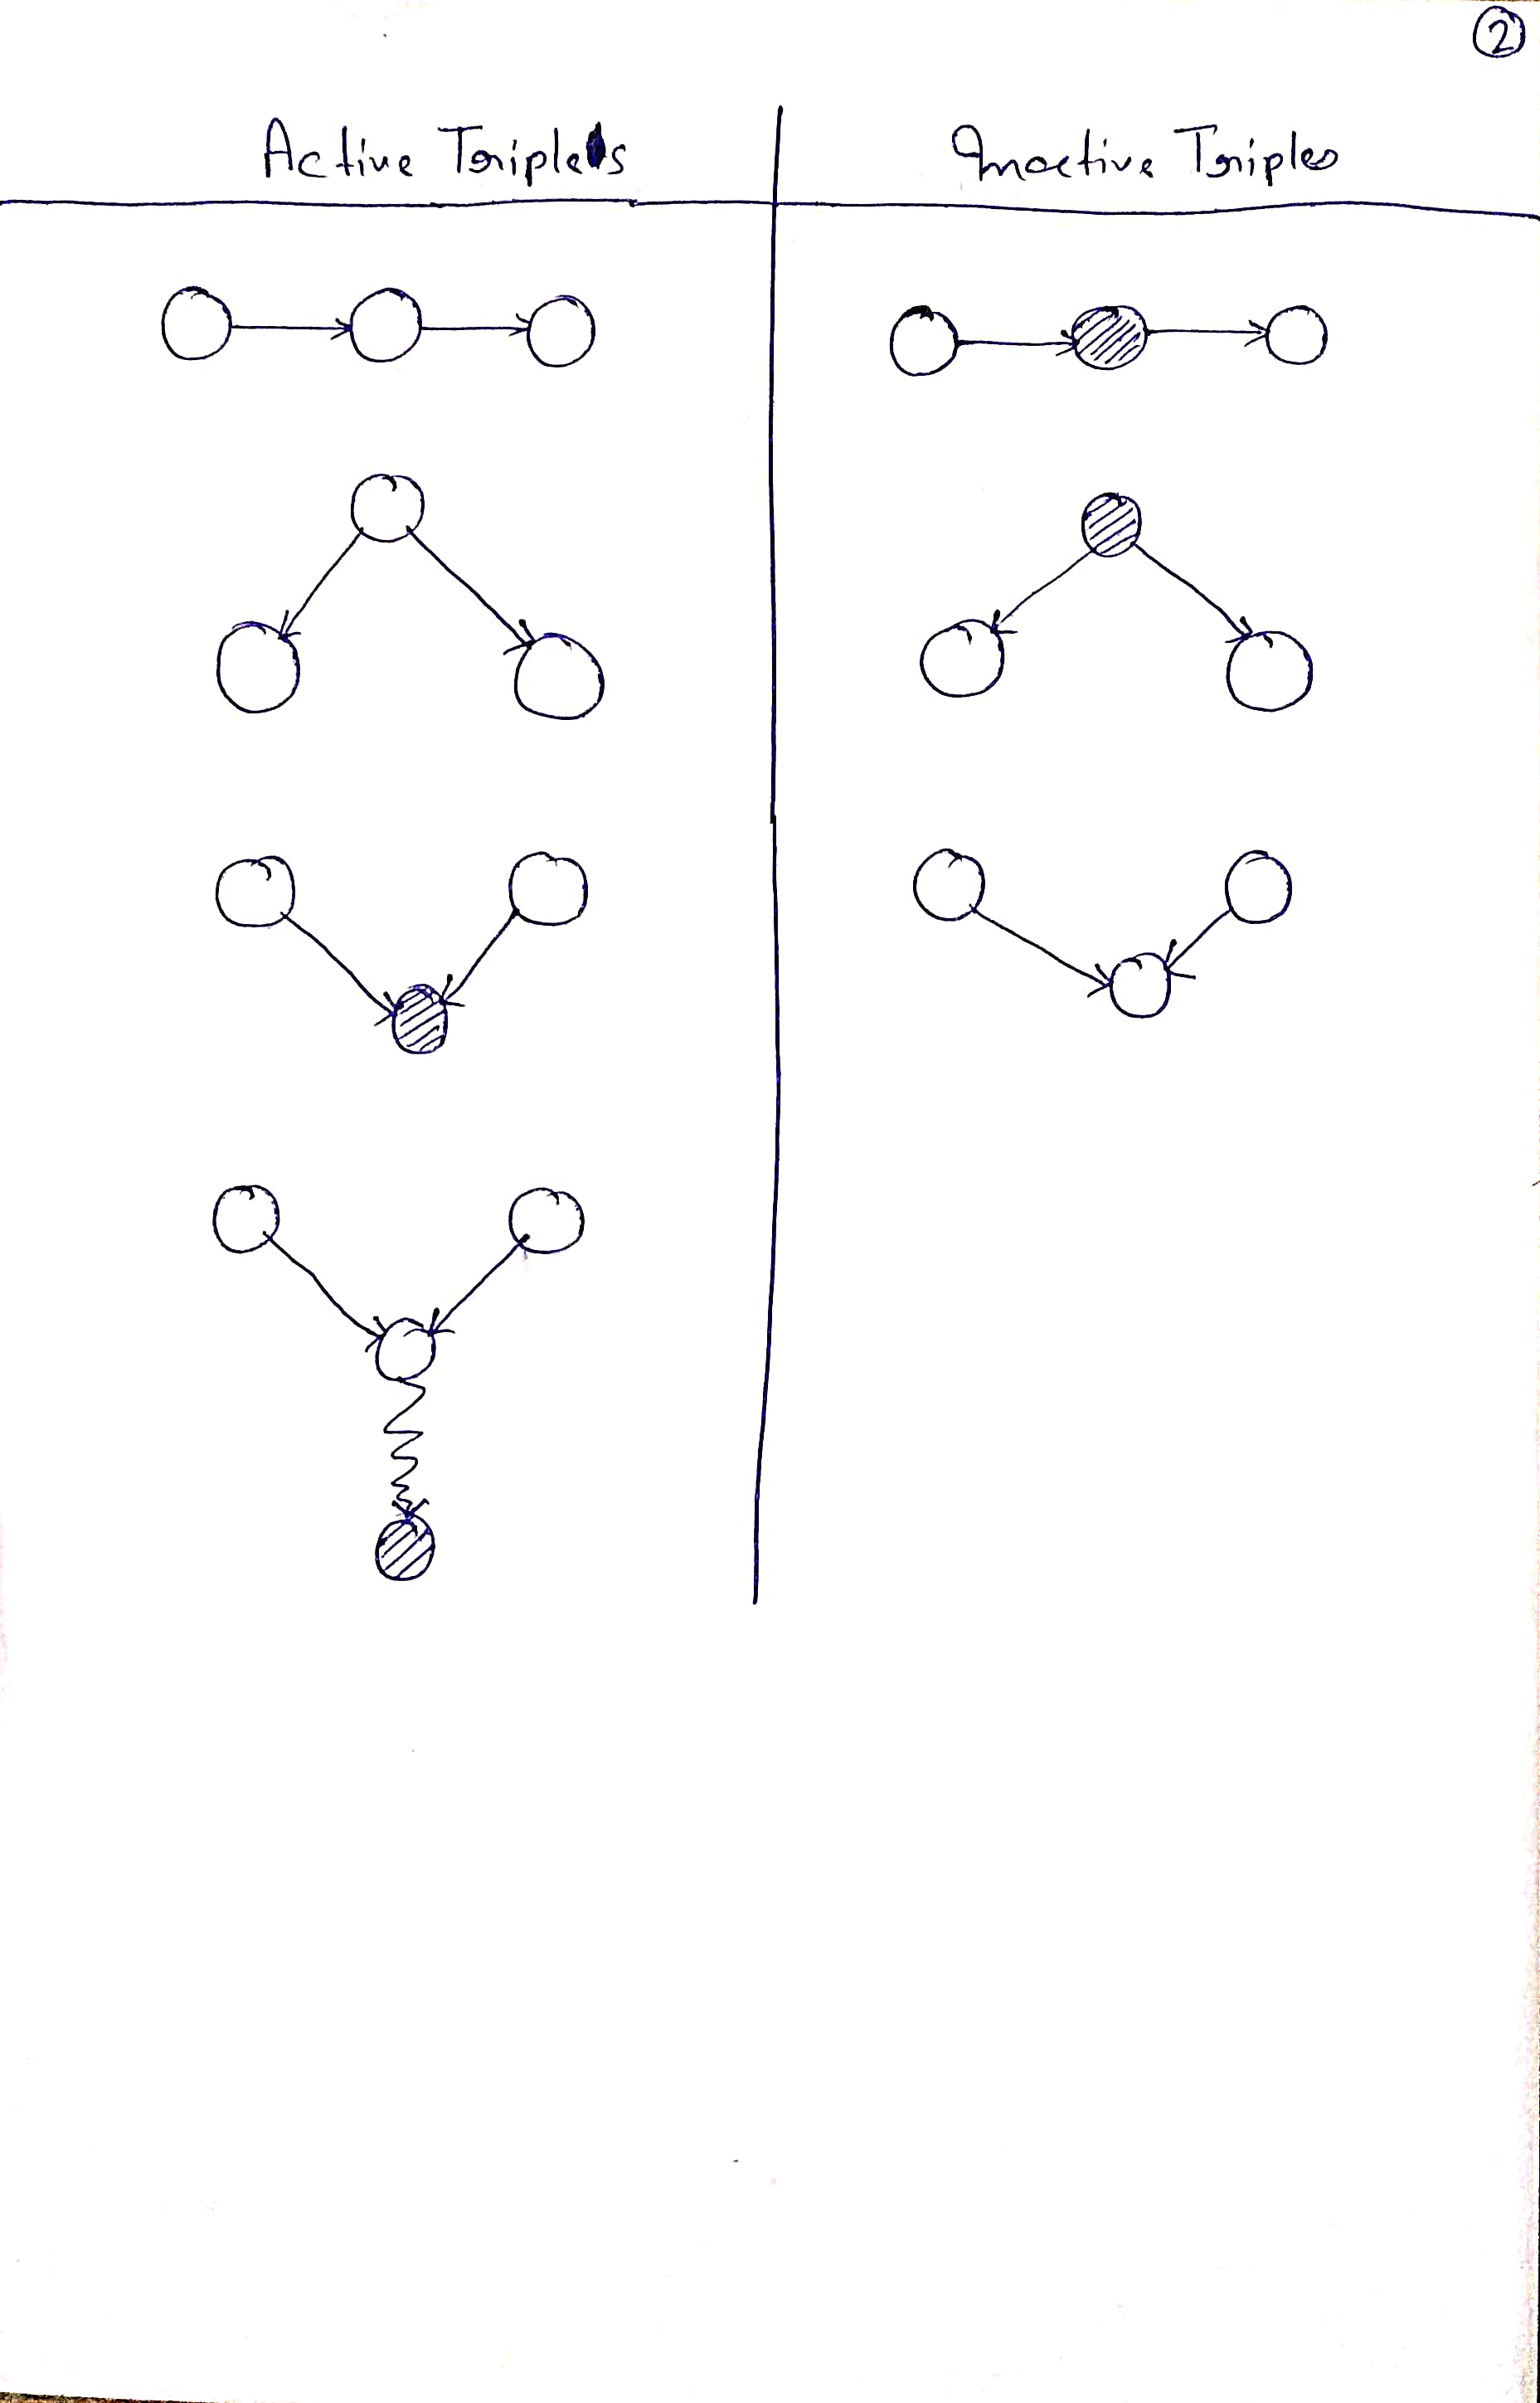 2
Active Triples
Inactive Triples